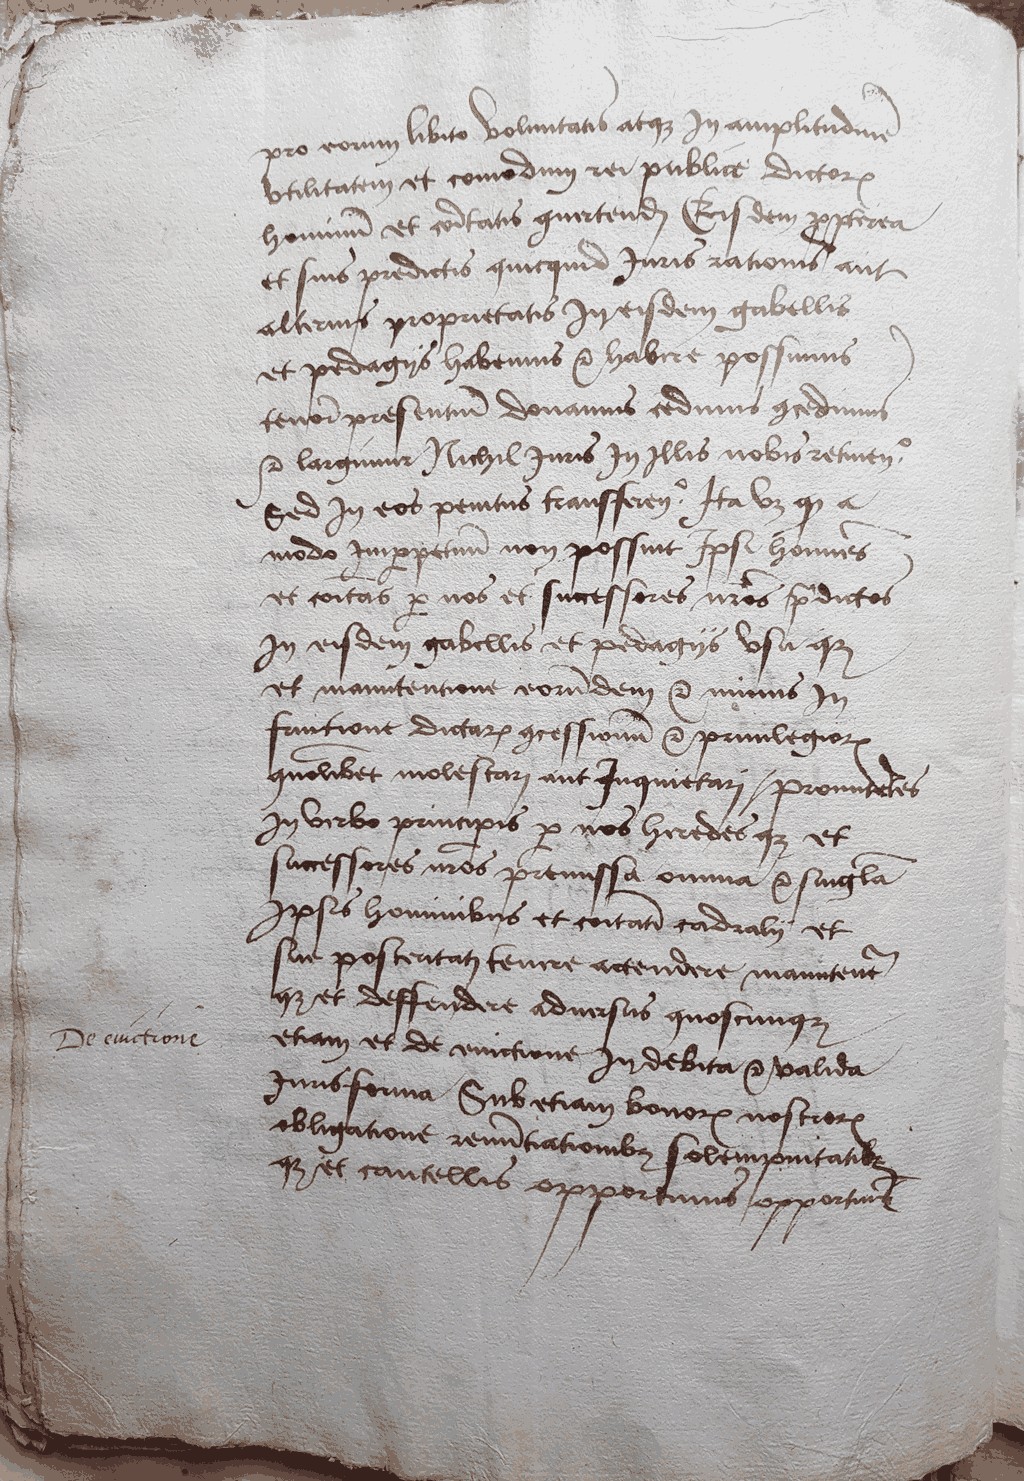 pro eorum libito voluntatis atqȝ In amplitudinē
vtilitatem et comodum rei publice dictorꝝ
hominū et cōītatis ꝯuertendꝭ Eisdem ꝓpterea
et suis predictis quicquid Iuris rationis aut
alterius proprietatis In eisdem gabellis
et pedagijs habemus ⁊ habere possumus
tenorē presentiū donamus cedimus ꝯcedimus
⁊ largimur Nichil Iuris In Illis nobis retinenº.
Sed In eos penitus transferenº. Ita vȝ qꝫ a
modo Imꝑpetuū non possint Ipsi homines
et cōītas ꝑ nos et successores nr̄os p̄dictos
In eisdem gabellis et pedagijs vsu qȝ
et manutentione eorūdem ⁊ minus In
fruitione dictarꝝ ꝯcessionū ⁊ priuilegiorꝝ
quolibet molestari aut Inquietari / promittētes
In verbo principis ꝑ nos heredes qȝ et
successores nr̄os premissa omnia ⁊ singula
Ipsis hominibus et cōītati cadralij et
sue posteritati tenere attendere manutene᷒
qȝ et deffendere aduersus quoscunqȝ
De euictione
etiam et de euictione In debita ⁊ valida
Iuris forma Sub etiam bonorꝝ nostrorꝝ
obligatione renūtiationibȝ solempnitatibȝ
qȝ et cautellis opportunis opportune